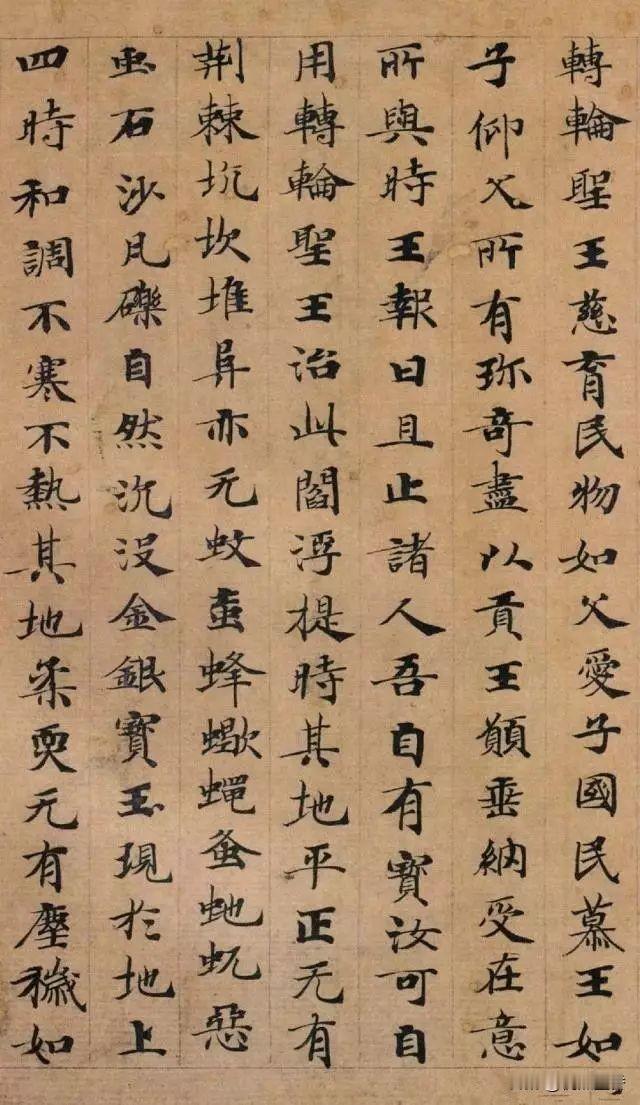 轉輪聖王慈育民物如父愛子國民慕王如
子仰父所有珎奇盡以貢王願垂納受在意
所與時王報曰且止諸人吾自有寳汝可自
用轉輪聖王治此閻浮提時其地平正无有
荆棘坑坎堆阜亦无蚊虻蜂蠍蠅蚤虵虺惡
虫石沙凡礫自然沉没金銀寳玉現於地上
四時和調不寒不熱其地柔耎无有塵穢如